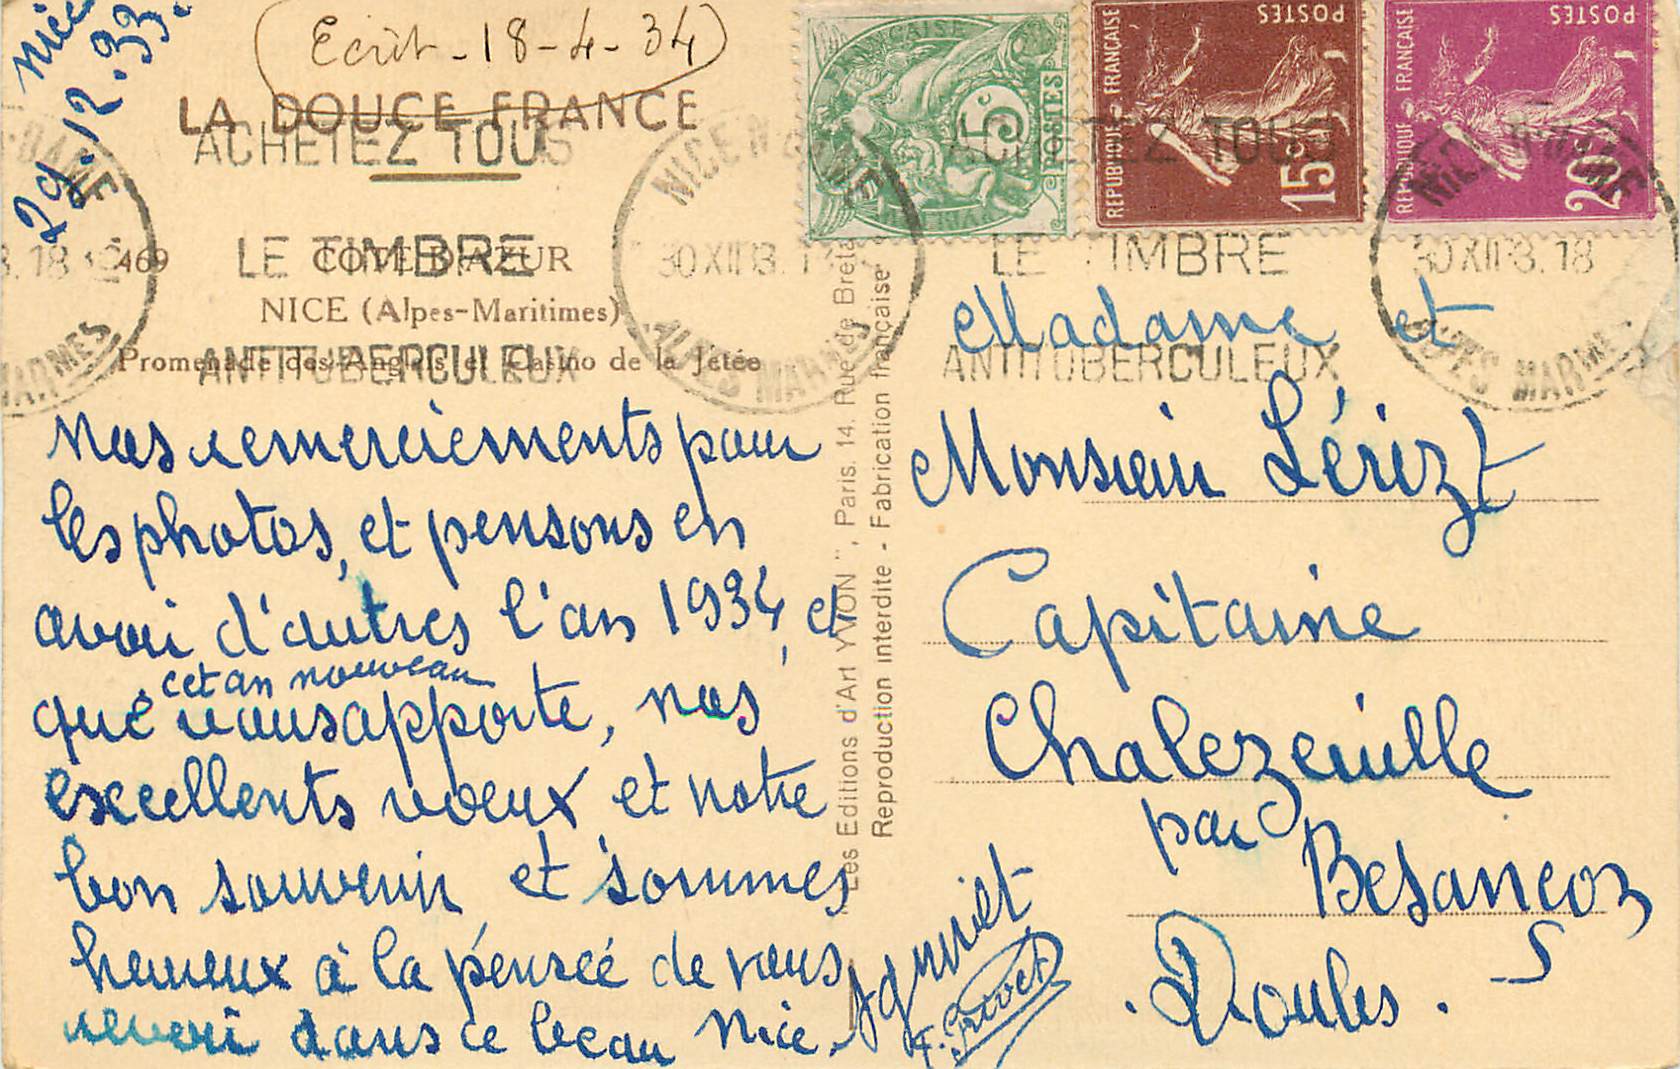 Nice
29.12.33.
Ecrit - 18-4-34
LA DOUCE FRANCE
469 COTE D'AZUR
NICE (Alpes-Maritimes)
Promenade des Anglais et Casino de la Jetée
ACHETEZ TOUS
LE TIMBRE
ANTITUBERCULEUX
NICE N. DAME
30 XII 18
ALPES MARMES
POSTES
5c
REPUBLIQUE FRANÇAISE
POSTES
15c
REPUBLIQUE FRANÇAISE
POSTES
20c
ACHETEZ TOUS
LE TIMBRE
ANTITUBERCULEUX
30 XII 18
ALPES MARMES
nos remerciements pour
les photos, et pensons en
avoir d'autres l'an 1934, et
cet an nouveau
que vous apporte, nos
excellents voeux et notre
bon souvenir et sommes
heureux à la pensée de vous
revoir dans ce beau Nice.
Les Editions d'Art YVON", Paris. 14, Rue de Breta
Reproduction interdite - Fabrication française
Madame et
Monsieur
Capitaine
Chalezeuille
par
Besancon
Doubs.